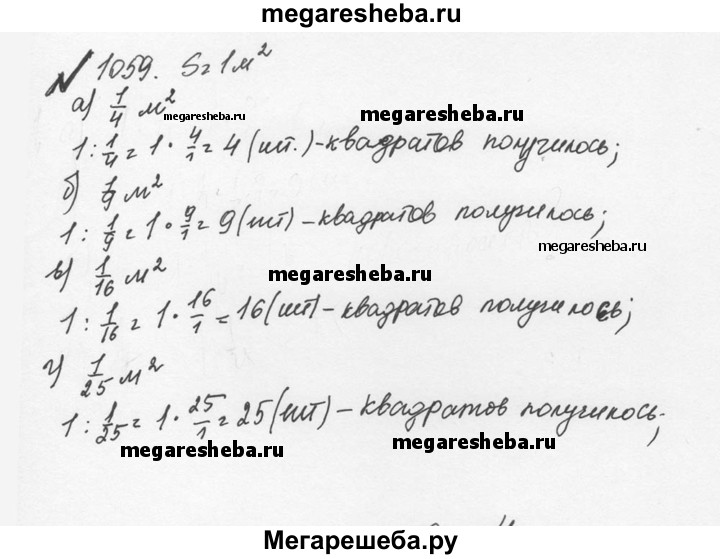 megaresheba.com
№ 1059. S=1м²
а) 1/4 м² megaresheba.com
1 : 1/4 = 1 · 4/1 = 4 (шт.) - квадратов получилось;
б) 1/9 м²
1 : 1/9 = 1 · 9/1 = 9 (шт) - квадратов получилось;
megaresheba.com
в) 1/16 м² megaresheba.com
1 : 1/16 = 1 · 16/1 = 16 (шт) - квадратов получилось;
г) 1/25 м²
1 : 1/25 = 1 · 25/1 = 25 (шт) - квадратов получилось;
megaresheba.com megaresheba.com
Мегарешеба.ру